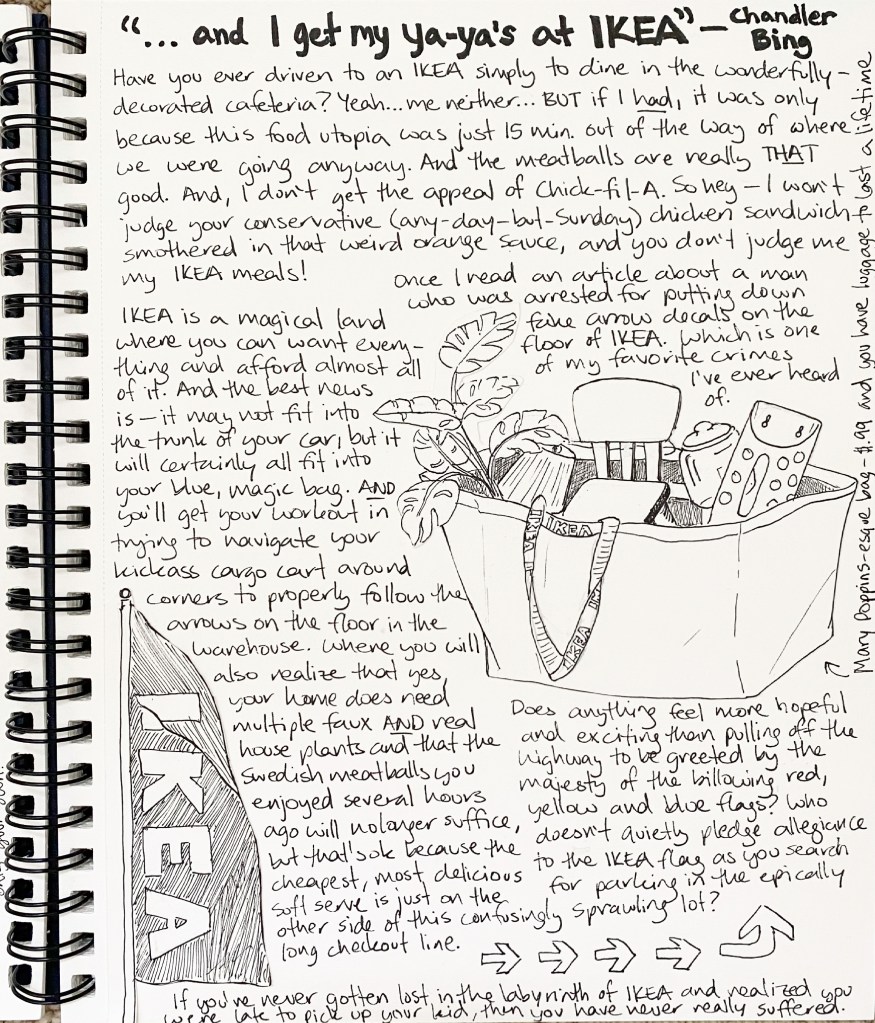 "... and I get my ya-ya's at IKEA" — Chandler Bing
Have you ever driven to an IKEA simply to dine in the wonderfully-
decorated cafeteria? Yeah...me neither... BUT if I had, it was only
because this food utopia was just 15 min. out of the way of where
we were going anyway. And the meatballs are really THAT
good. And, I don't get the appeal of Chick-fil-A. So hey — I won't
judge your conservative (any-day-but-Sunday) chicken sandwich
smothered in that weird orange sauce, and you don't judge me
my IKEA meals!
Once I read an article about a man
who was arrested for putting down
fake arrow decals on the
floor of IKEA. Which is one
of my favorite crimes
I've ever heard
of.
IKEA is a magical land
where you can want every-
thing and afford almost all
of it. And the best news
is — it may not fit into
the trunk of your car, but it
will certainly all fit into
your blue, magic bag. AND
you'll get your workout in
trying to navigate your
kickass cargo cart around
corners to properly follow the
arrows on the floor in the
warehouse. Where you will
also realize that yes,
your home does need
multiple faux AND real
house plants and that the
Swedish meatballs you
enjoyed several hours
ago will no longer suffice,
but that's ok because the
cheapest, most delicious
soft serve is just on the
other side of this confusingly
long checkout line.
IKEA
IKEA
IKEA
IKEA
Mary Poppins-esque bag - $.99 and you have luggage to last a lifetime
Does anything feel more hopeful
and exciting than pulling off the
highway to be greeted by the
majesty of the billowing red,
yellow and blue flags? Who
doesn't quietly pledge allegiance
to the IKEA flag as you search
for parking in the epically
sprawling lot?
If you've never gotten lost in the labyrinth of IKEA and realized you
were late to pick up your kid, then you have never really suffered.